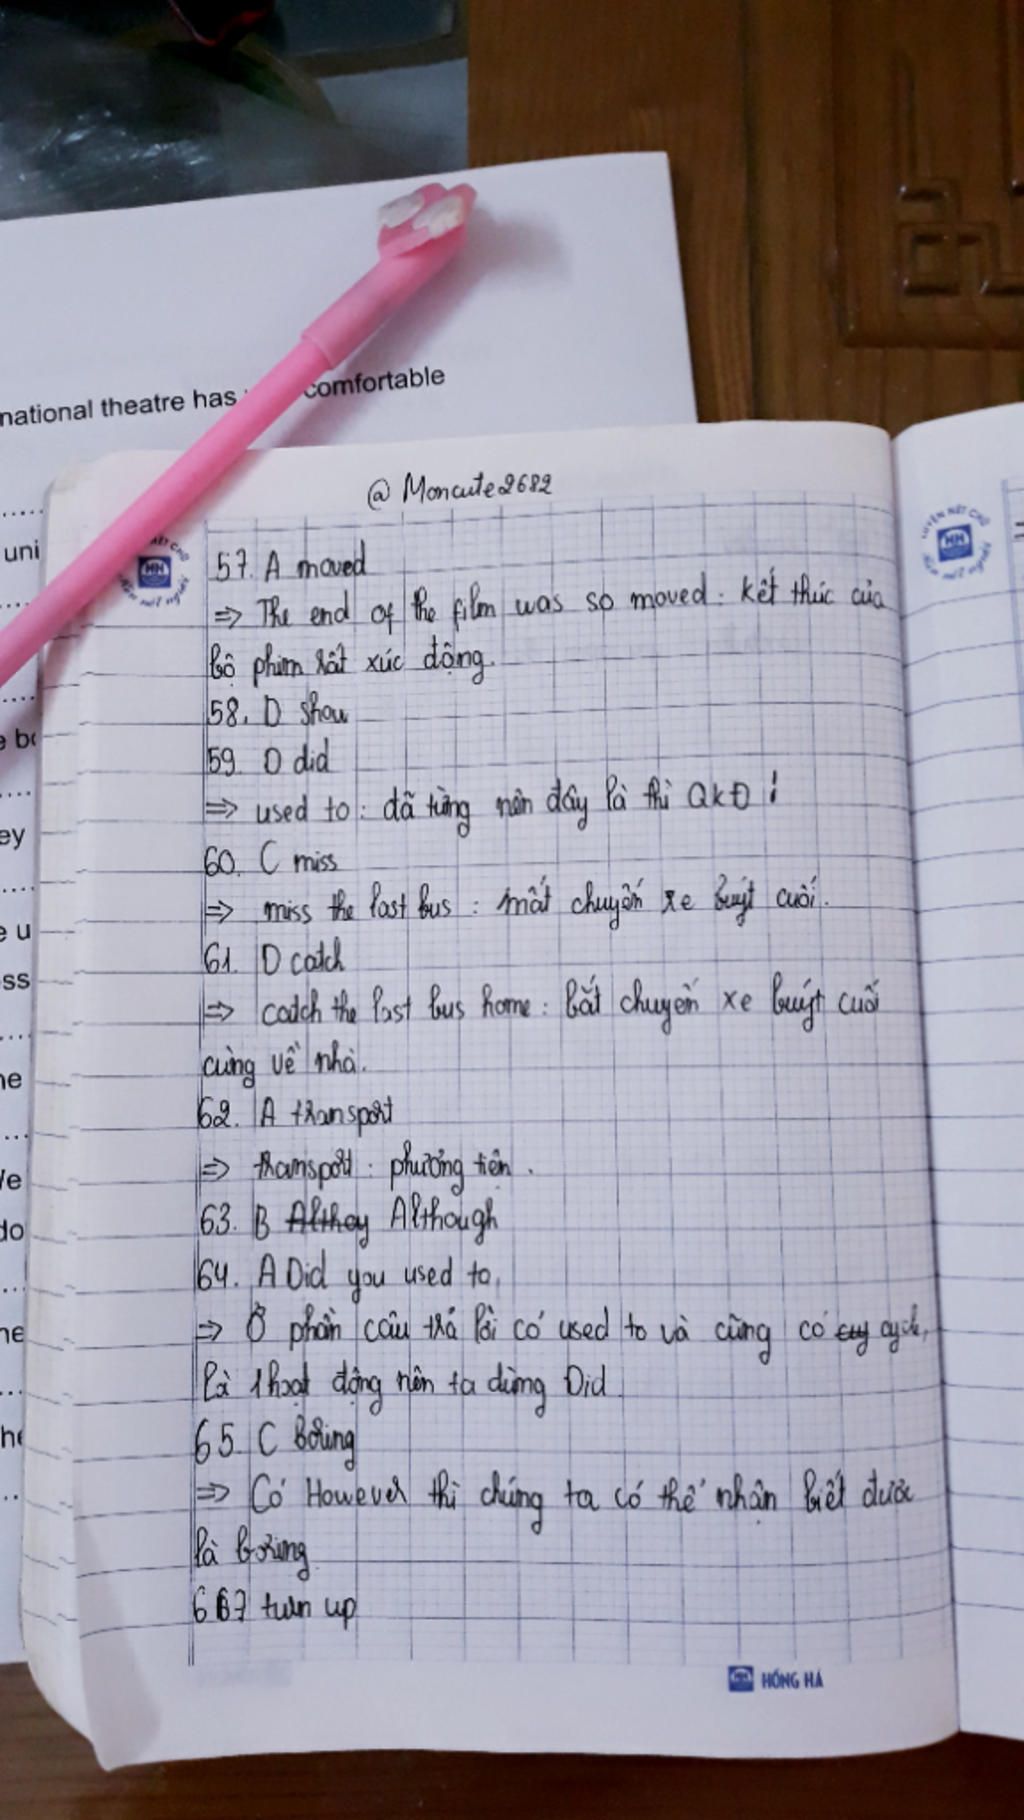 national theatre has comfortable
uni
ey
e u
ss
ne
do
ne
he
@ Moncute2682
57. A moved
=> The end of the film was so moved. kết thúc của
bộ phim rất xúc động.
58. D show
59. D did
=> used to : đã từng nên đây là thì QKĐ !
60. C miss
=> miss the last bus : mất chuyến xe buýt cuối.
61. D catch
=> catch the last bus home : bắt chuyến xe buýt cuối
cùng về nhà.
62. A transport
=> transport : phương tiện.
63. B Although
64. A Did you used to
=> Ở phần câu trả lời có used to và cũng có cycle,
là 1 hoạt động nên ta dùng Did
65. C Boring
=> Có However thì chúng ta có thể nhận biết được
là boring
turn up
HỒNG HÀ